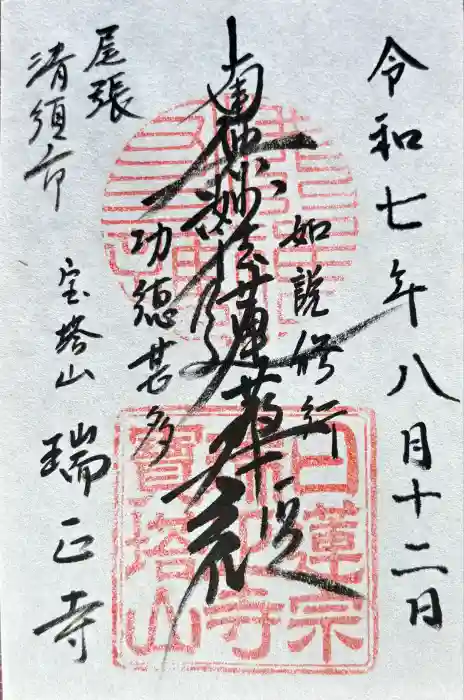 令和七年八月十二日
如説修行
南無妙法蓮華経
功徳甚多
尾張
清須市
宝塔山
瑞正寺
日蓮宗
瑞正寺
寶塔山